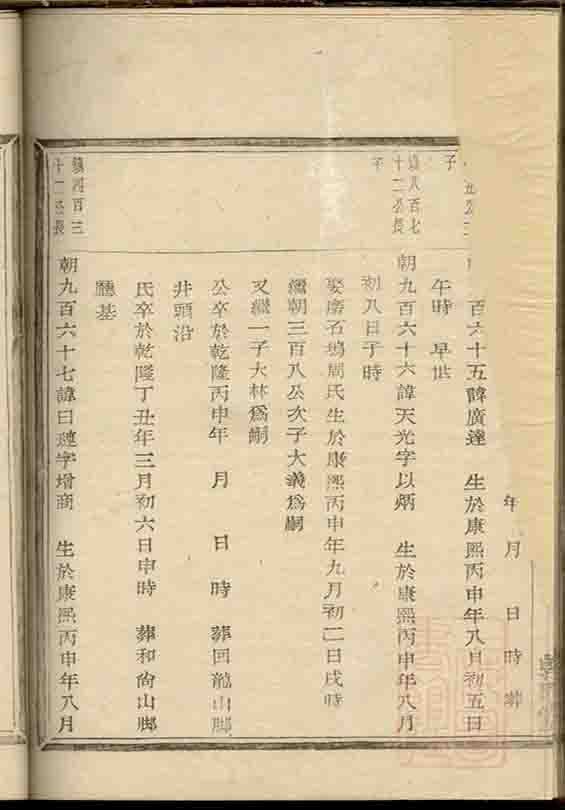 年 月 日時葬
百六十五諱廣達 生於康熙丙申年八月初五日
午時 早世
鎮八百七
十二公長
子
朝九百六十六諱天光字以炳 生於康熙丙申年八月
初八日子時
娶磨石塢周氏生於康熙丙申年九月初二日戌時
繼朝三百八公次子大義為嗣
又繼一子大林為嗣
公卒於乾隆丙申年 月 日 時 葬回龍山脚
井頭沿
氏卒於乾隆丁丑年三月初六日申時 葬和尚山脚
廳基
鎮四百三
十二公長
朝九百六十七諱曰璉字增商 生於康熙丙申年八月